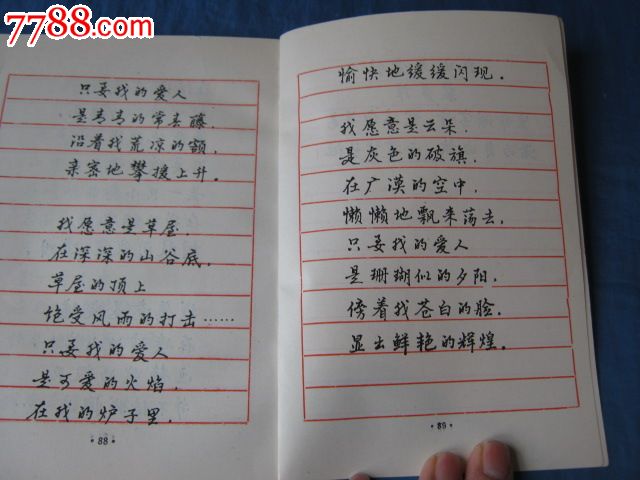 7788.com
只要我的爱人
是青青的常春藤，
沿着我荒凉的额，
亲密地攀援上升。
我愿意是草屋，
在深深的山谷底，
草屋的顶上
饱受风雨的打击……
只要我的爱人
是可爱的火焰，
在我的炉子里，
·88·
愉快地缓缓闪现。
我愿意是云朵，
是灰色的破旗，
在广漠的空中，
懒懒地飘来荡去，
只要我的爱人
是珊瑚似的夕阳，
傍着我苍白的脸，
显出鲜艳的辉煌。
·89·